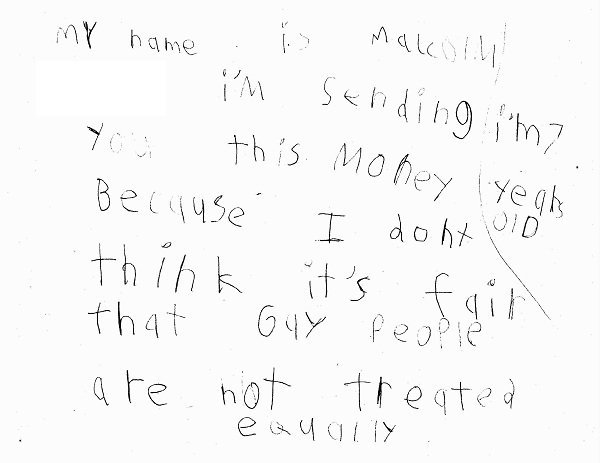 MY name is Malcolm
i'M sending
i'm 7
years
OlD
You this Money
Because I dont
think it's fair
that Gay People
are not treated
equally